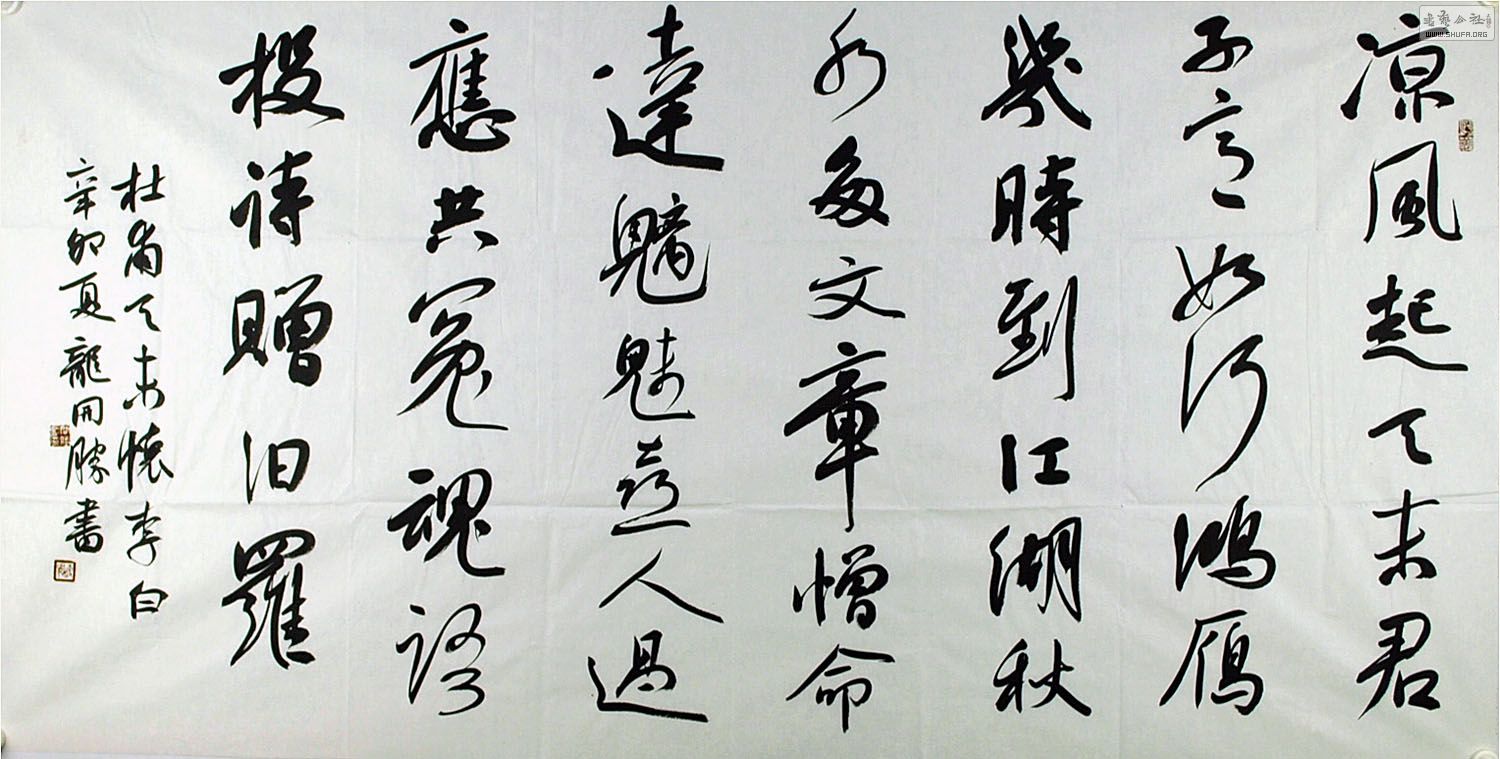 凉風起天末君
子意如何鴻鴈
幾時到江湖秋
水多文章憎命
達魑魅喜人過
應共冤魂語
投詩贈汨羅
杜甫天末懷李白
辛卯夏龍開勝書
書藝公社
WWW.SHUFA.ORG